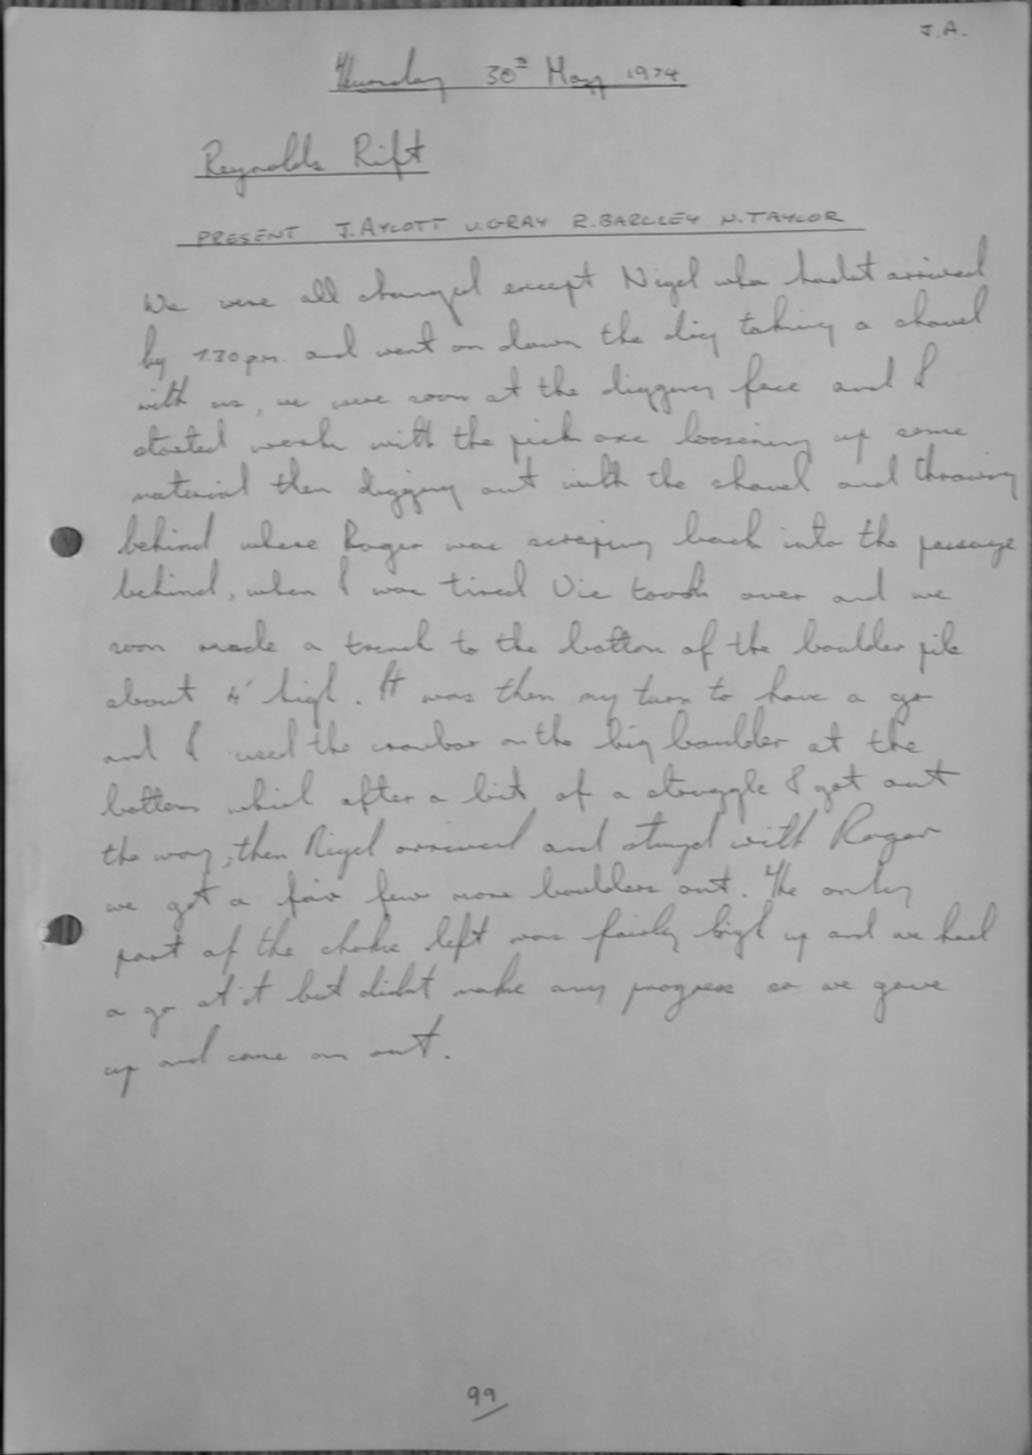 J.A.
Thursday 30th May 1974
Reynolds Rift
PRESENT J. AYLOTT V. GRAY R. BARCLEY N. TAYLOR
We were all changed except Nigel who hadnt arrived
by 7.30 pm. and went on down the dig taking a shovel
with us, we were soon at the digging face and I
started work with the pick axe loosening up some
material then digging out with the shovel and throwing
behind where Roger was scraping back into the passage
behind, when I was tired Vic took over and we
soon made a trench to the bottom of the boulder pile
about 4' high. It was then my turn to have a go
and I used the crowbar on the big boulder at the
bottom which after a bit of a struggle I got out
the way, then Nigel arrived and stayed with Roger
we got a fair few more boulders out. The only
part of the choke left was fairly high up and we had
a go at it but didnt make any progress so we gave
up and came on out.
99